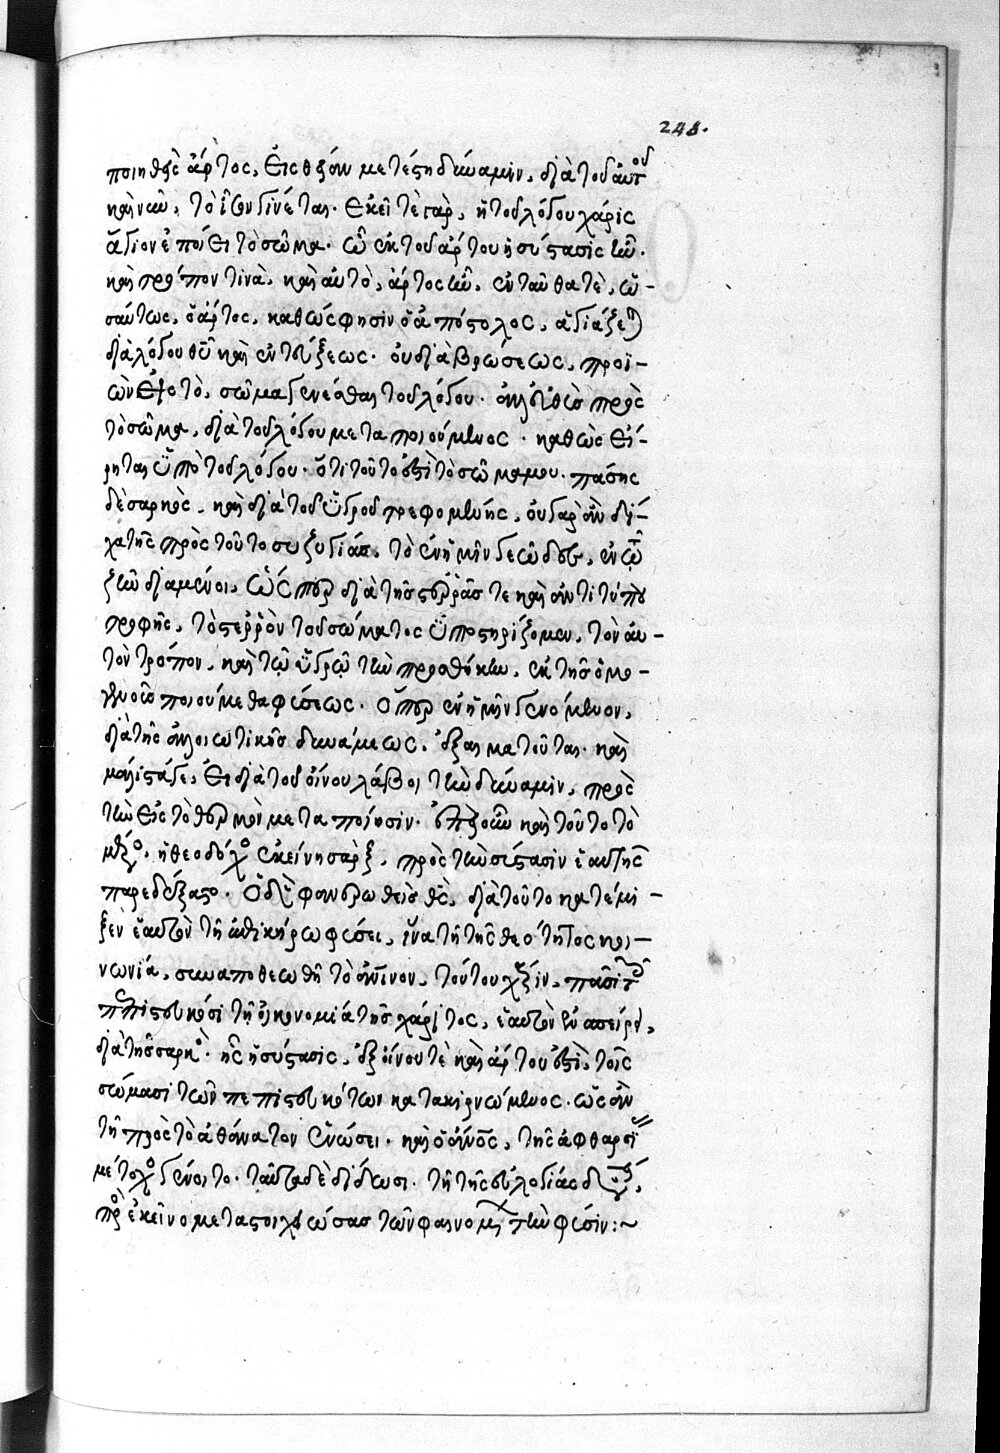 248.
ποιηθεὶς ἄρτος, εἰς θείαν μετέστη δύναμιν, διὰ τοῦ αὐτοῦ
καὶ νῦν, τὸ ἴσον γίνεται. ἐκεῖ τὲ γὰρ, ἡ τοῦ λόγου χάρις
ἅγιον ἐποίει τὸ σῶμα. ὧ ἐκ τοῦ ἄρτου ἡ σύστασις ἦν.
καὶ τρόπον τινὰ, καὶ αὐτὸ, ἄρτος ἦν. ἐνταῦθα τὲ, ὡ-
σαύτως, ὁ ἄρτος, καθώς φησιν ὁ ἀπόστολος, ἁγιάζεται
διὰ λόγου θεοῦ καὶ ἐντεύξεως. οὐ διὰ βρώσεως, προϊ-
ὼν εἰς τὸ, σῶμα γενέσθαι τοῦ λόγου. ἀλλ' εὐθὺς πρὸς
τὸ σῶμα, διὰ τοῦ λόγου μεταποιούμενος. καθὼς εἴ-
ρηται ὑπὸ τοῦ λόγου. ὅτι τοῦτο ἐστὶ τὸ σῶμα μου. πάσης
δὲ σαρκὸς, καὶ διὰ τοῦ ὑγροῦ τρεφομένης, οὐ γὰρ ἂν δί-
χα τῆς πρὸς τοῦτο συζυγίας, τὸ ἐν ἡμῖν γεῶδες, ἐν τῷ
ζῆν διαμένοι, ὥσπερ διὰ τῆς στερρᾶς τε καὶ ἀντιτύπου
τροφῆς, τὸ στερρὸν τοῦ σώματος ὑποστηρίζομεν, τὸν αὐ-
τὸν τρόπον, καὶ τῷ ὑγρῷ τὴν προσθήκην, ἐκ τῆς ὁμο-
γενοῦς ποιούμεθα φύσεως. ὅπερ ἐν ἡμῖν γενόμενον,
διὰ τῆς ἀλλοιωτικῆς δυνάμεως, ἐξαιματοῦται. καὶ
μάλιστά γε, εἰ διὰ τοῦ οἴνου λάβοι τὴν δύναμιν, πρὸς
τὴν εἰς τὸ θερμὸν μεταποίησιν. ἐπεὶ οὖν καὶ τοῦτο τὸ
μέρος, ἡ θεοδόχος ἐκείνη σὰρξ, πρὸς τὴν σύστασιν ἑαυτῆς
παρεδέξατο. ὁ δὲ φανερωθεὶς θεὸς, διὰ τοῦτο κατέμι-
ξεν ἑαυτὸν τῇ ἐπικήρῳ φύσει, ἵνα τῇ τῆς θεότητος κοι-
νωνίᾳ, συναποθεωθῇ τὸ ἀνθρώπινον, τούτου χάριν, πᾶσι τοῖς
πεπιστευκόσι τῇ οἰκονομίᾳ τῆς χάριτος, ἑαυτὸν ἐνσπείρει,
διὰ τῆς σαρκός. ἧς ἡ σύστασις, ἐξ οἴνου τὲ καὶ ἄρτου ἐστὶ, τοῖς
σώμασι τῶν πεπιστευκότων κατακιρνώμενος. ὡς ἂν
τῇ πρὸς τὸ ἀθάνατον ἑνώσει. καὶ ὁ ἄνθρωπος, τῆς ἀφθαρσίας
μέτοχος γένοιτο. ταῦτα δὲ δίδωσι. τῇ τῆς εὐλογίας δυνάμει,
πρὸς ἐκεῖνο μεταστοιχειώσας τῶν φαινομένων τὴν φύσιν :~